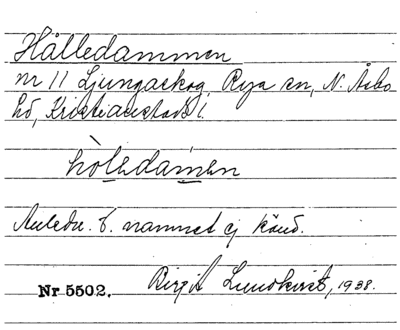 Hålledammen
nr 11 Ljungaskog, Rya sn, N. Åsbo
hd, Kristianstads l.
hòledam̀en
Anledn. t. namnet ej känd.
Nr 5502. Birgit Lundkvist, 1938.